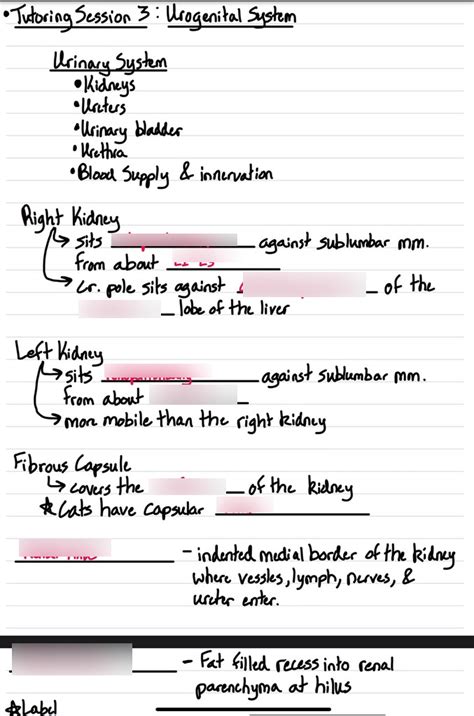 • Tutoring Session 3: Urogenital System
Urinary System
• Kidneys
• Ureters
• Urinary bladder
• Urethra
• Blood Supply & innervation
Right Kidney
↳ sits ___ against sublumbar mm.
from about ___
↳ Cr. pole sits against ___ of the
___ lobe of the liver
Left Kidney
↳ sits ___ against sublumbar mm.
from about ___
↳ more mobile than the right kidney
Fibrous Capsule
↳ covers the ___ of the kidney
☆ Cats have capsular ___
___ - indented medial border of the kidney
where vessles, lymph, nerves, &
ureter enter.
___ - Fat filled recess into renal
parenchyma at hilus
☆ Label